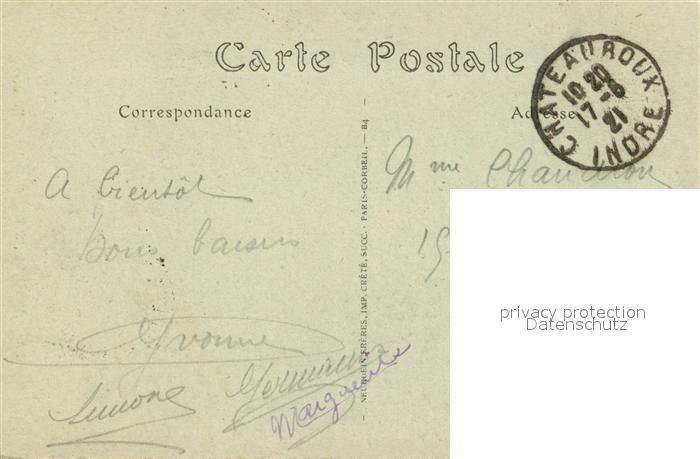 Carte Postale
Correspondance
Adresse
CHATEAUROUX
10 20
17 -6
21
INDRE
A bientôt
bons baisers
Yvonne
Simone Germaine
Marguerite
NEURDEIN FRÈRES, IMP. CRÉTÉ, SUCC. · PARIS-CORBEIL. — 84
Mme
19
privacy protection
Datenschutz